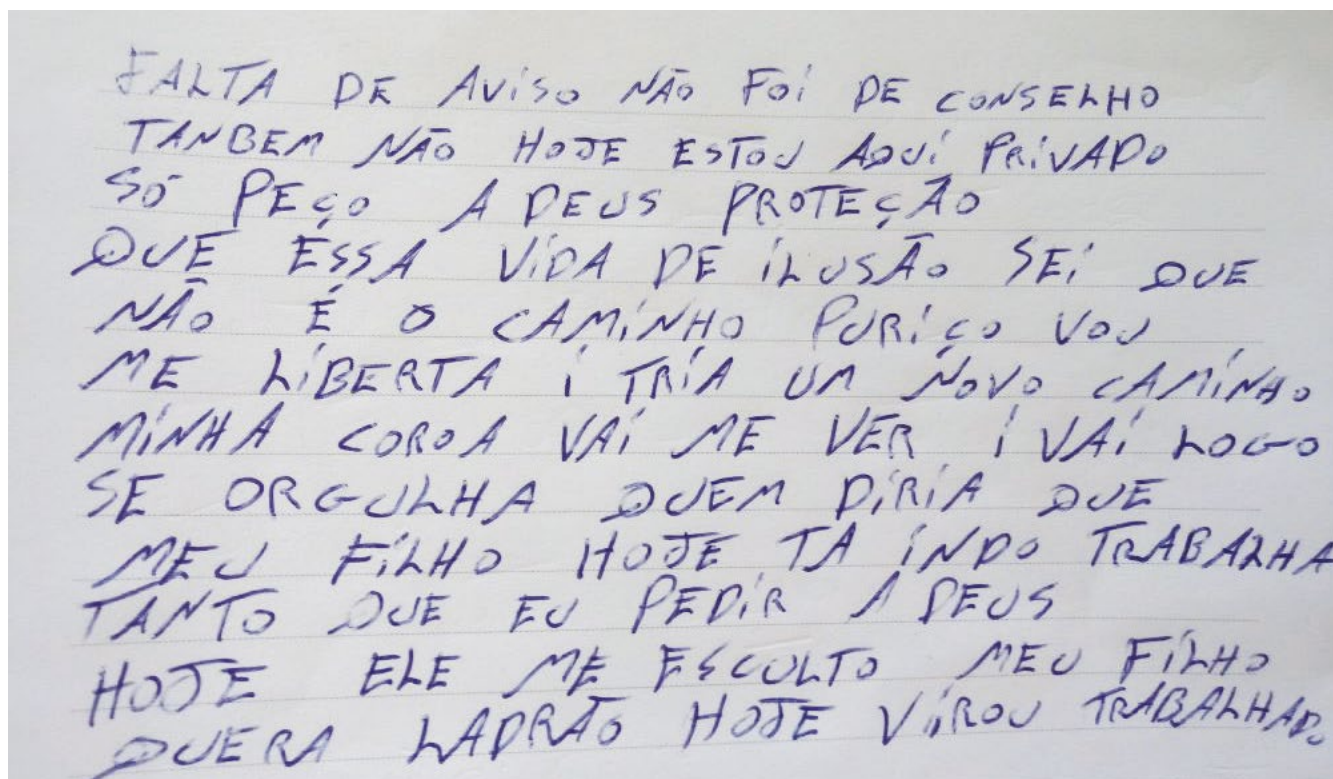 FALTA DE AViSO NÃO FOi DE CONSELHO
TANBEM NÃO HOJE ESTOU AQUi PRiVADO
SÓ PEÇO A DEUS PROTEÇÃO
QUE ESSA ViDA DE iLUSÃO SEi QUE
NÃO É O CAMiNHO PURiÇO VOU
ME LiBERTA i TRiA UM NOVO CAMiNHO
MiNHA COROA VAi ME VER i VAi LOGO
SE ORGULHA QUEM DiRiA QUE
MEU FiLHO HOJE TA iNDO TRABALHA
TANTO QUE EU PEDiR A DEUS
HOJE ELE ME ESCULTO MEU FiLHO
QUERA LADRÃO HOJE ViROU TRABALHADO